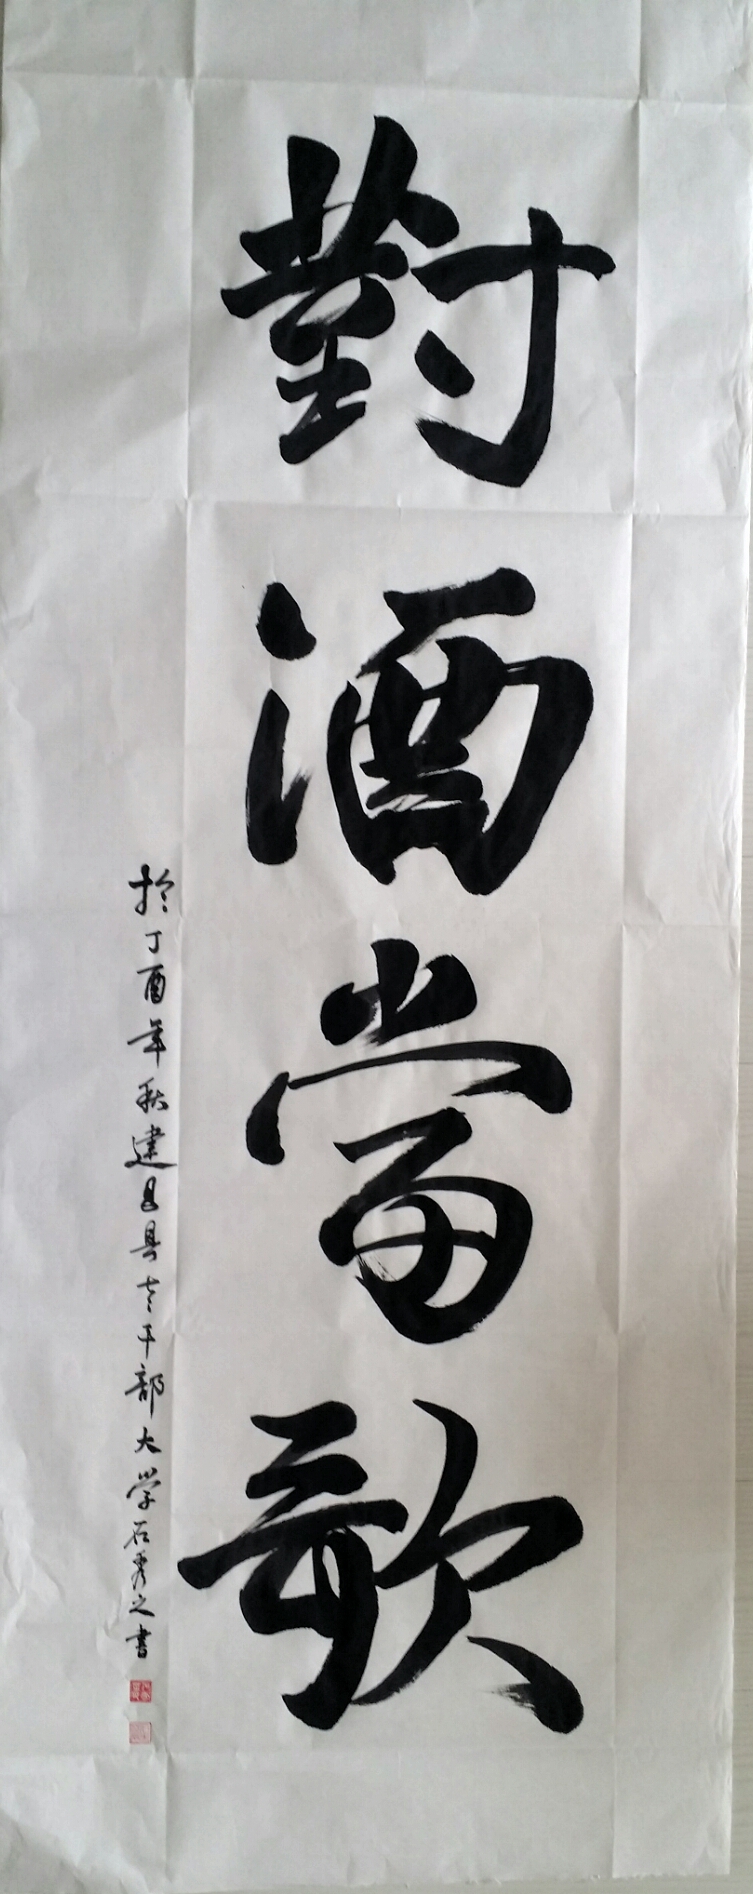 對酒當歌
於丁酉年秋建昌县老干部大学石秀之书